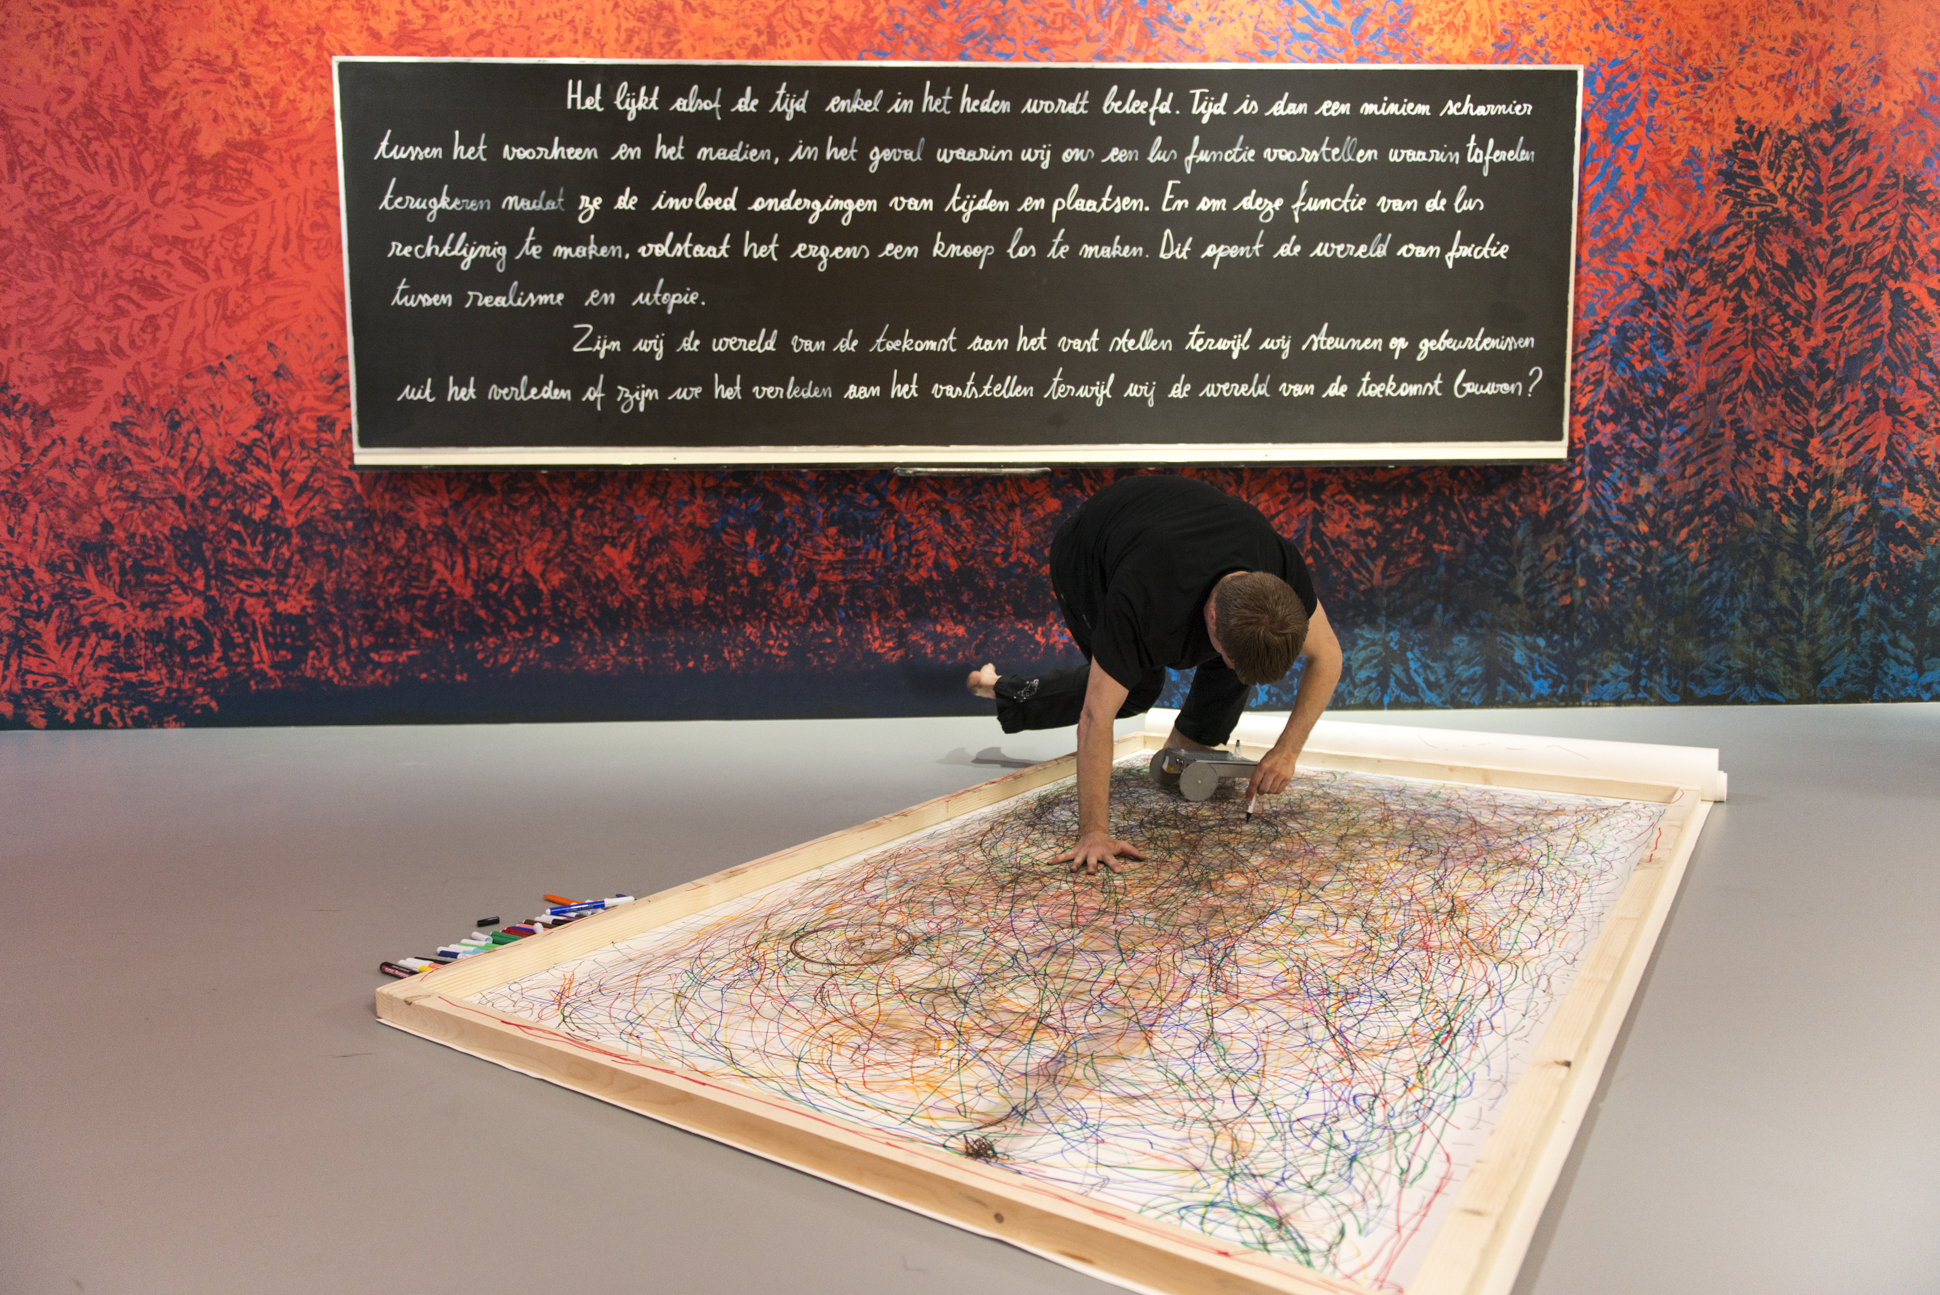 Het lijkt alsof de tijd enkel in het heden wordt beleefd. Tijd is dan een miniem scharnier
tussen het voorheen en het nadien, in het geval waarin wij ons een lus functie voorstellen waarin taferelen
terugkeren nadat ze de invloed ondergingen van tijden en plaatsen. En om deze functie van de lus
rechtlijnig te maken, volstaat het ergens een knoop los te maken. Dit opent de wereld van frictie
tussen realisme en utopie.
Zijn wij de wereld van de toekomst aan het vast stellen terwijl wij steunen op gebeurtenissen
uit het verleden of zijn we het verleden aan het vaststellen terwijl wij de wereld van de toekomst bouwen?